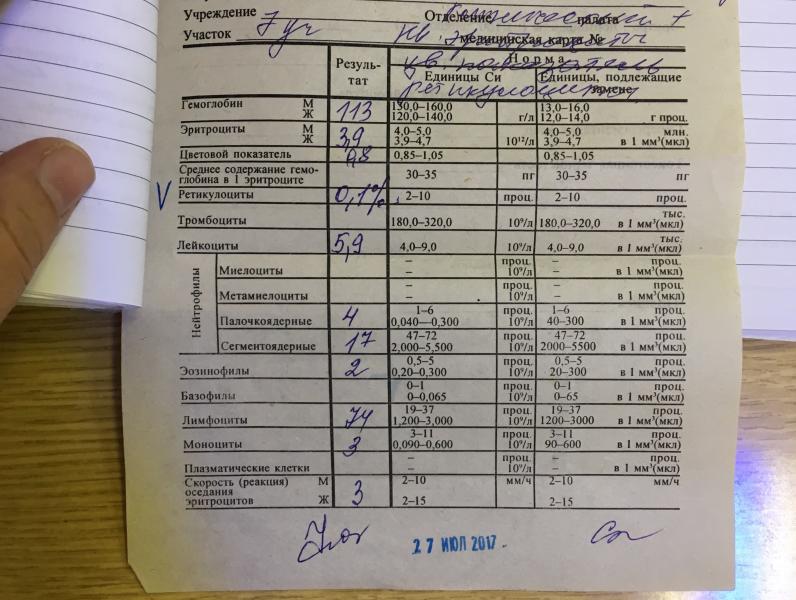 Учреждение 7 уч Отделение палата
Участок медицинская карта №
Резуль-
тат
Норма
Единицы Си Единицы, подлежащие
замене
Гемоглобин М 113 130,0–160,0 13,0–16,0
Ж 120,0–140,0 г/л 12,0–14,0 г проц.
Эритроциты М 3,9 4,0–5,0 4,0–5,0 млн.
Ж 3,9–4,7 10¹²/л 3,9–4,7 в 1 мм³(мкл)
Цветовой показатель 0,8 0,85–1,05 0,85–1,05
Среднее содержание гемо-
глобина в 1 эритроците 30–35 пг 30–35 пг
V Ретикулоциты 0,1% 2–10 проц. 2–10 проц.
Тромбоциты 180,0–320,0 10⁹/л 180,0–320,0 тыс. в 1 мм³(мкл)
Лейкоциты 5,9 4,0–9,0 10⁹/л 4,0–9,0 тыс. в 1 мм³(мкл)
Нейтрофилы
Миелоциты – проц. – проц.
– 10⁹/л – в 1 мм³(мкл)
Метамиелоциты – проц. – проц.
– 10⁹/л – в 1 мм³(мкл)
Палочкоядерные 4 1–6 проц. 1–6 проц.
0,040–0,300 10⁹/л 40–300 в 1 мм³(мкл)
Сегментоядерные 17 47–72 проц. 47–72 проц.
2,000–5,500 10⁹/л 2000–5500 в 1 мм³(мкл)
Эозинофилы 2 0,5–5 проц. 0,5–5 проц.
0,20–0,300 10⁹/л 20–300 в 1 мм³(мкл)
Базофилы 0–1 проц. 0–1 проц.
0–0,065 10⁹/л 0–65 в 1 мм³(мкл)
Лимфоциты 74 19–37 проц. 19–37 проц.
1,200–3,000 10⁹/л 1200–3000 в 1 мм³(мкл)
Моноциты 3 3–11 проц. 3–11 проц.
0,090–0,600 10⁹/л 90–600 в 1 мм³(мкл)
Плазматические клетки – проц. – проц.
– 10⁹/л – в 1 мм³(мкл)
Скорость (реакция) М 3 2–10 мм/ч 2–10 мм/ч
оседания
эритроцитов Ж 2–15 2–15
27 ИЮЛ 2017